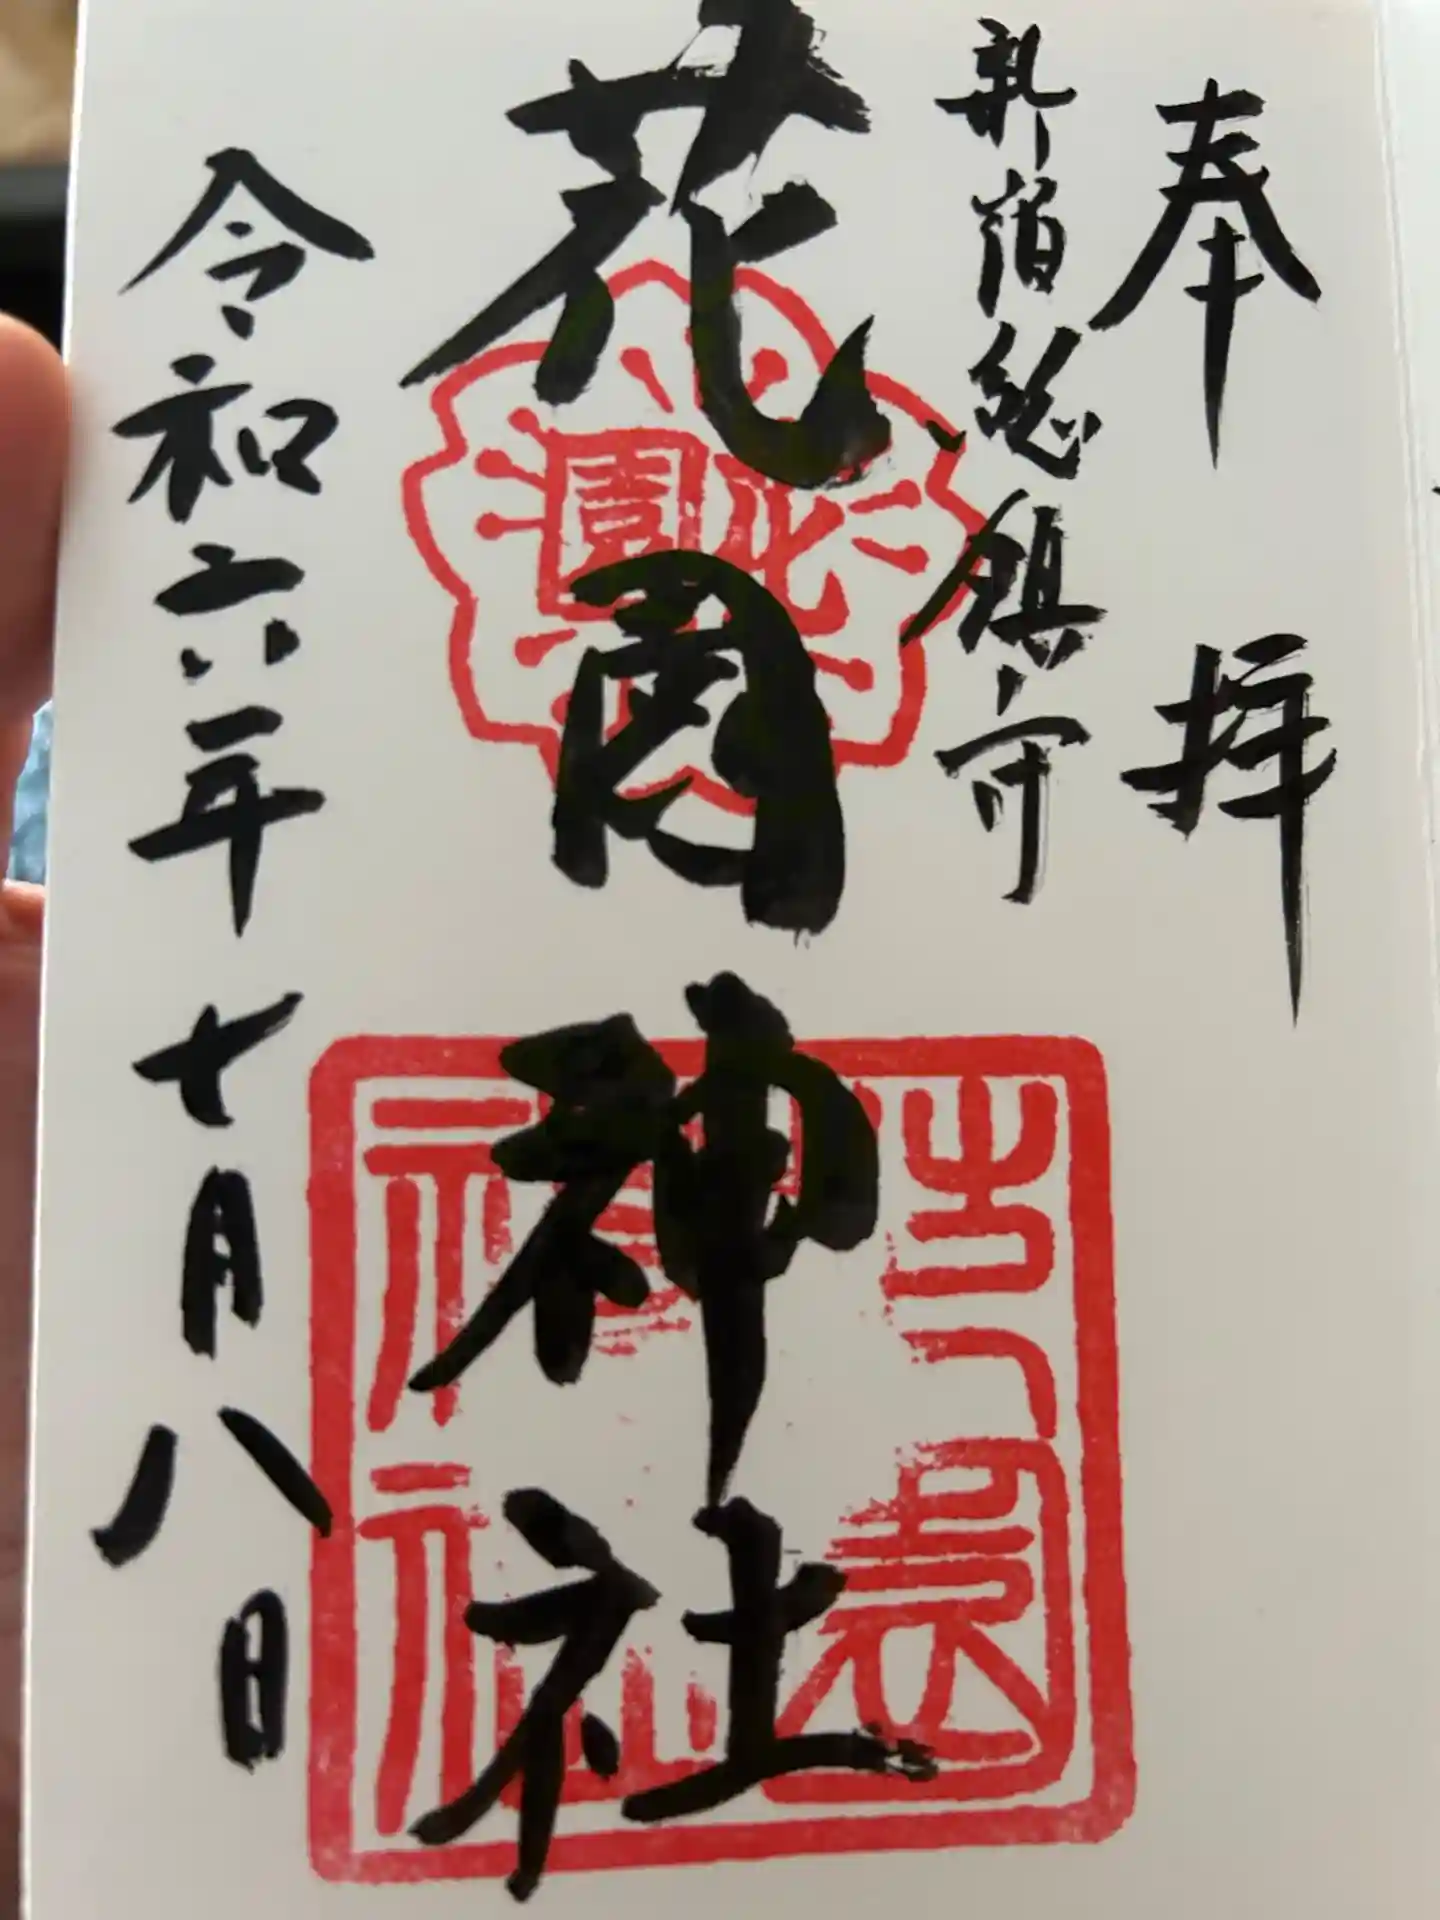 奉拝
新宿総鎮守
花園神社
花園
花園神社
令和六年七月八日